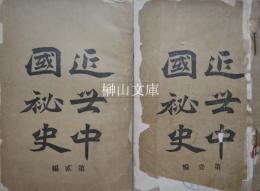 近世中
國秘史
第貳編
近世中
國秘史
第壹編
榊山文庫